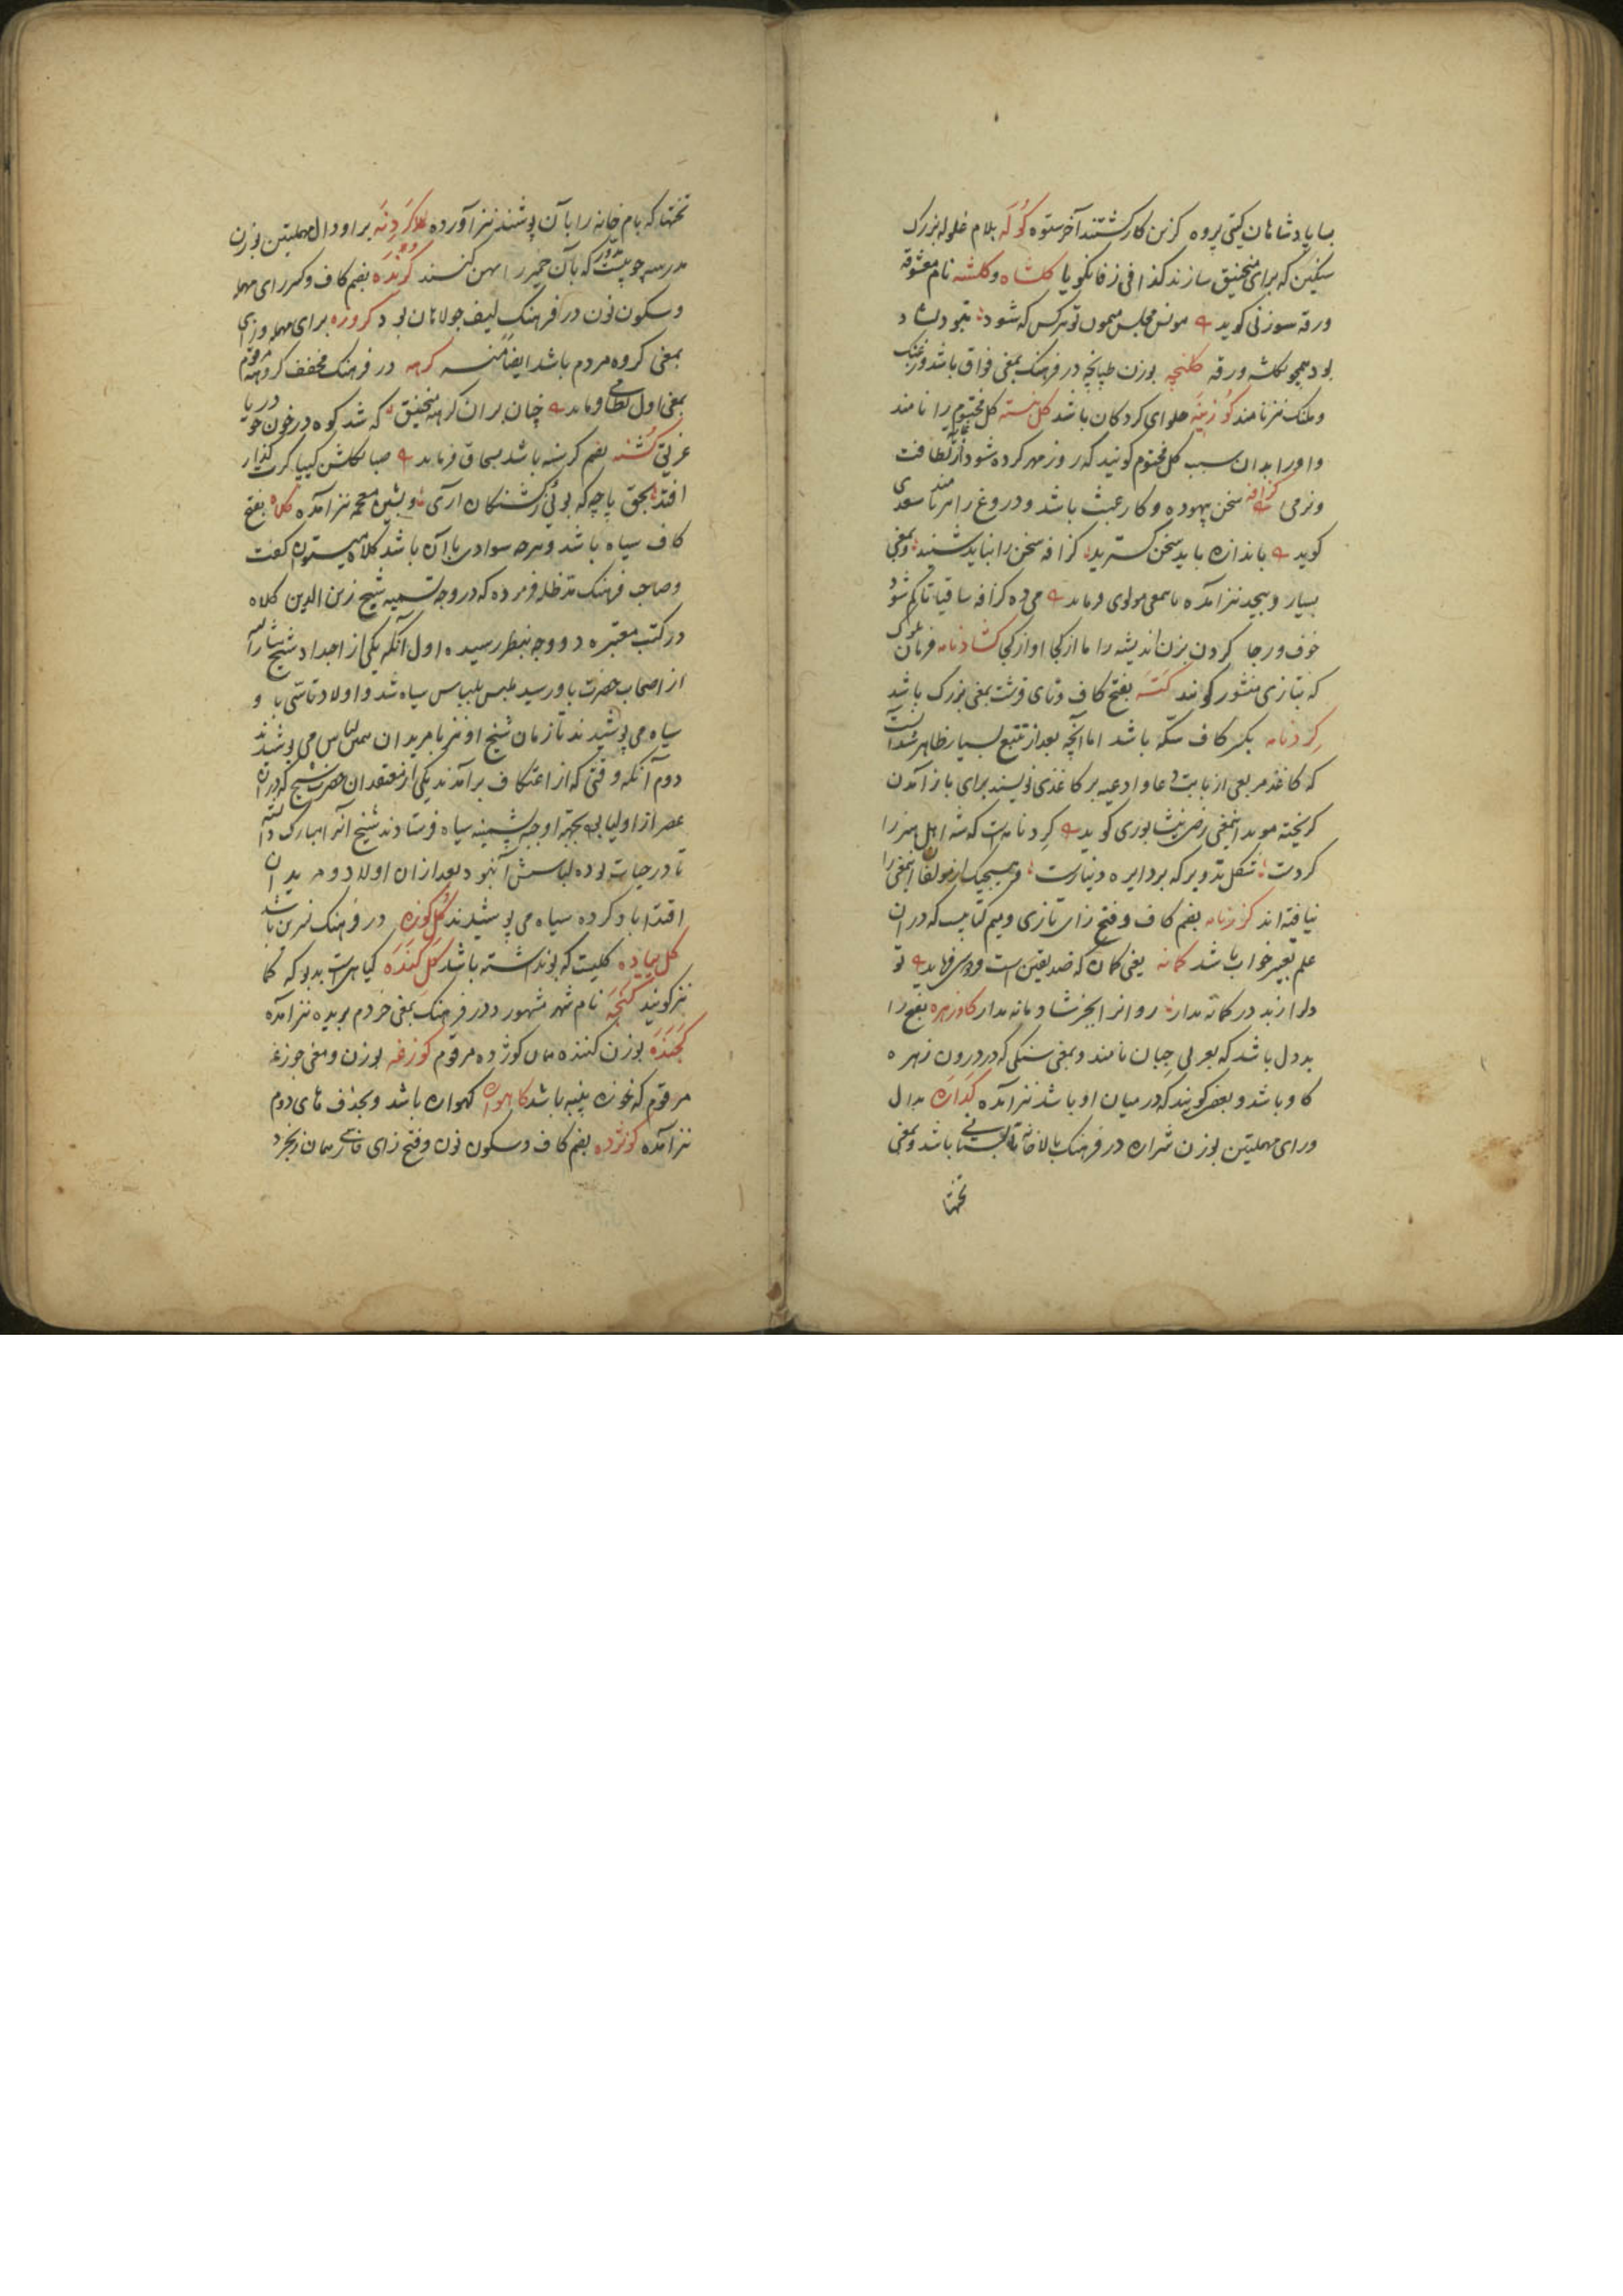 بسا پادشاهان کیتی پژوه کزین کار کشتند آخر ستوه کُولَه بلام غلوله بزرک
سنکین که برای منجنیق سازند کذا فی زفانکویا کلشاه و کلشه نام معشوقه
ورقه سوزنی کوید مونس مجلس میمون تو هرکس که شود
بود همچو کلشه ورقه کلنچه بوزن طپانچه در فرهنک بمعنی فواق باشد
نیز نامند کَوزینَه حلوای کردکان باشد کل خسته کل مختوم را نامند
و او را بدان سبب کل مختوم کویند که روز مهر کرده شود از لطافت
و نرمی کزافه سخن بیهوده و کار عبث باشد و دروغ را نیز نامند سعدی
کوید باندازه باید سخن کسترید کزافه سخن را نباید شنید و بمعنی
بسیار و بیحد نیز آمده باسمعی مولوی فرماید می ده کزافه ساقیا تا کم شود
خوف و رجا کردن بزن اندیشه را ما از کجا او از کجا کشادنامه فرمان ملوک
که بتازی منشور کویند کَتَه بفتح کاف و تای قرشت بمعنی بزرک باشد
کِردنامه بکسر کاف سکه باشد اما آنچه بعد از تتبع بسیار ظاهر شد آنست
که کاغذ مربعی از بابت دعا و ادعیه بر کاغذی نویسند برای باز آمدن
کریخته موید اینمعنی رضی نیشابوری کوید کِردنامه است که شه اهل هنر را
کردست شکل تدویر که بر دایره دینارست و هیچیک از مولفان اینمعنی را
نیافته اند کززنامه بضم کاف و فتح زای تازی و میم کتابیست که در ان
علم تعبیر خواب باشد کمانه یعنی کمان که ضد یقین است فرماید تو
دلرا ز بد در کمانه مدار روانرا بجز شادمانه مدار کاوزهره بفتح را
بددل باشد که بعربی جبان نامند و بمعنی سنکی که در درون زهره
کاو باشد و بعضی کویند که در میان او باشد نیز آمده کَدارَه بدال
و رای مهملتین بوزن شراره در فرهنک بالاخانه تابستانی باشد و بمعنی
تختها
تختها که بام خانه را با آن پوشند نیز آورده کَردِنَه برا و دال مهملتین بوزن
مدرسه چوبیست مدور که بآن خمیر را پهن کنند کُرندَه بضم کاف و کسر رای مهمله
و سکون نون در فرهنک لیف جولاهان بود کروزه برای مهمله و زای
بمعنی کروه مردم باشد ایضا منه کرهه در فرهنک مخفف کروهه مرقوم
بمعنی اول نظامی فرماید چنان بران کرهه منجنیق که شد کوه در خون چو دریا
غریق کُشنه بضم کرسنه باشد بسحاق فرماید صبا بکلشن کیپا کرت کذار
افتد بحق پاچه که بوئی بکشنکان آری و بشین معجمه نیز آمده کلاه بفتح
کاف سیاه باشد و هرچه سواد در با آن باشد کلاه میتوان کفت
و صاحب فرهنک مد ظله فرموده که در وجه تسمیه شیخ زین الدین کلاه
در کتب معتبره دو وجه بنظر رسیده اول آنکه یکی از اجداد شیخ
از اصحاب حضرت باو رسید ملبس بلباس سیاه شد و اولاد تاسی باو
سیاه می پوشیدند تا زمان شیخ او نیز با مریدان همین لباس می پوشیدند
دوم آنکه وقتی که از اعتکاف برآمدند یکی از معتقدان حضرت شیخ که در ان
عصر از اولیا بود بجهة او جبه پشمینه سیاه فرستادند شیخ انرا مبارک دانسته
تا در حیات بوده لباسش آن بود بعد از ان اولاد و مریدان
اقتدا باو کرده سیاه می پوشیدند کُل کوزه در فرهنک نسرین باشد
کل پیاده کلیست که بو نداشته باشد کَل کَندَه کیاهیست بدبو که کما
نیز کویند کَنجَه نام شهر مشهور و در فرهنک بمعنی خر دم بریده نیز آمده
کَجَندَه بوزن کننده همان کوژده مرقوم کوزغه بوزن و معنی جوزغه
مرقوم که غوزه پنبه باشد کاهواره کهواره باشد و بحذف های دوم
نیز آمده کونژده بضم کاف و سکون نون و فتح زای فارسی همان